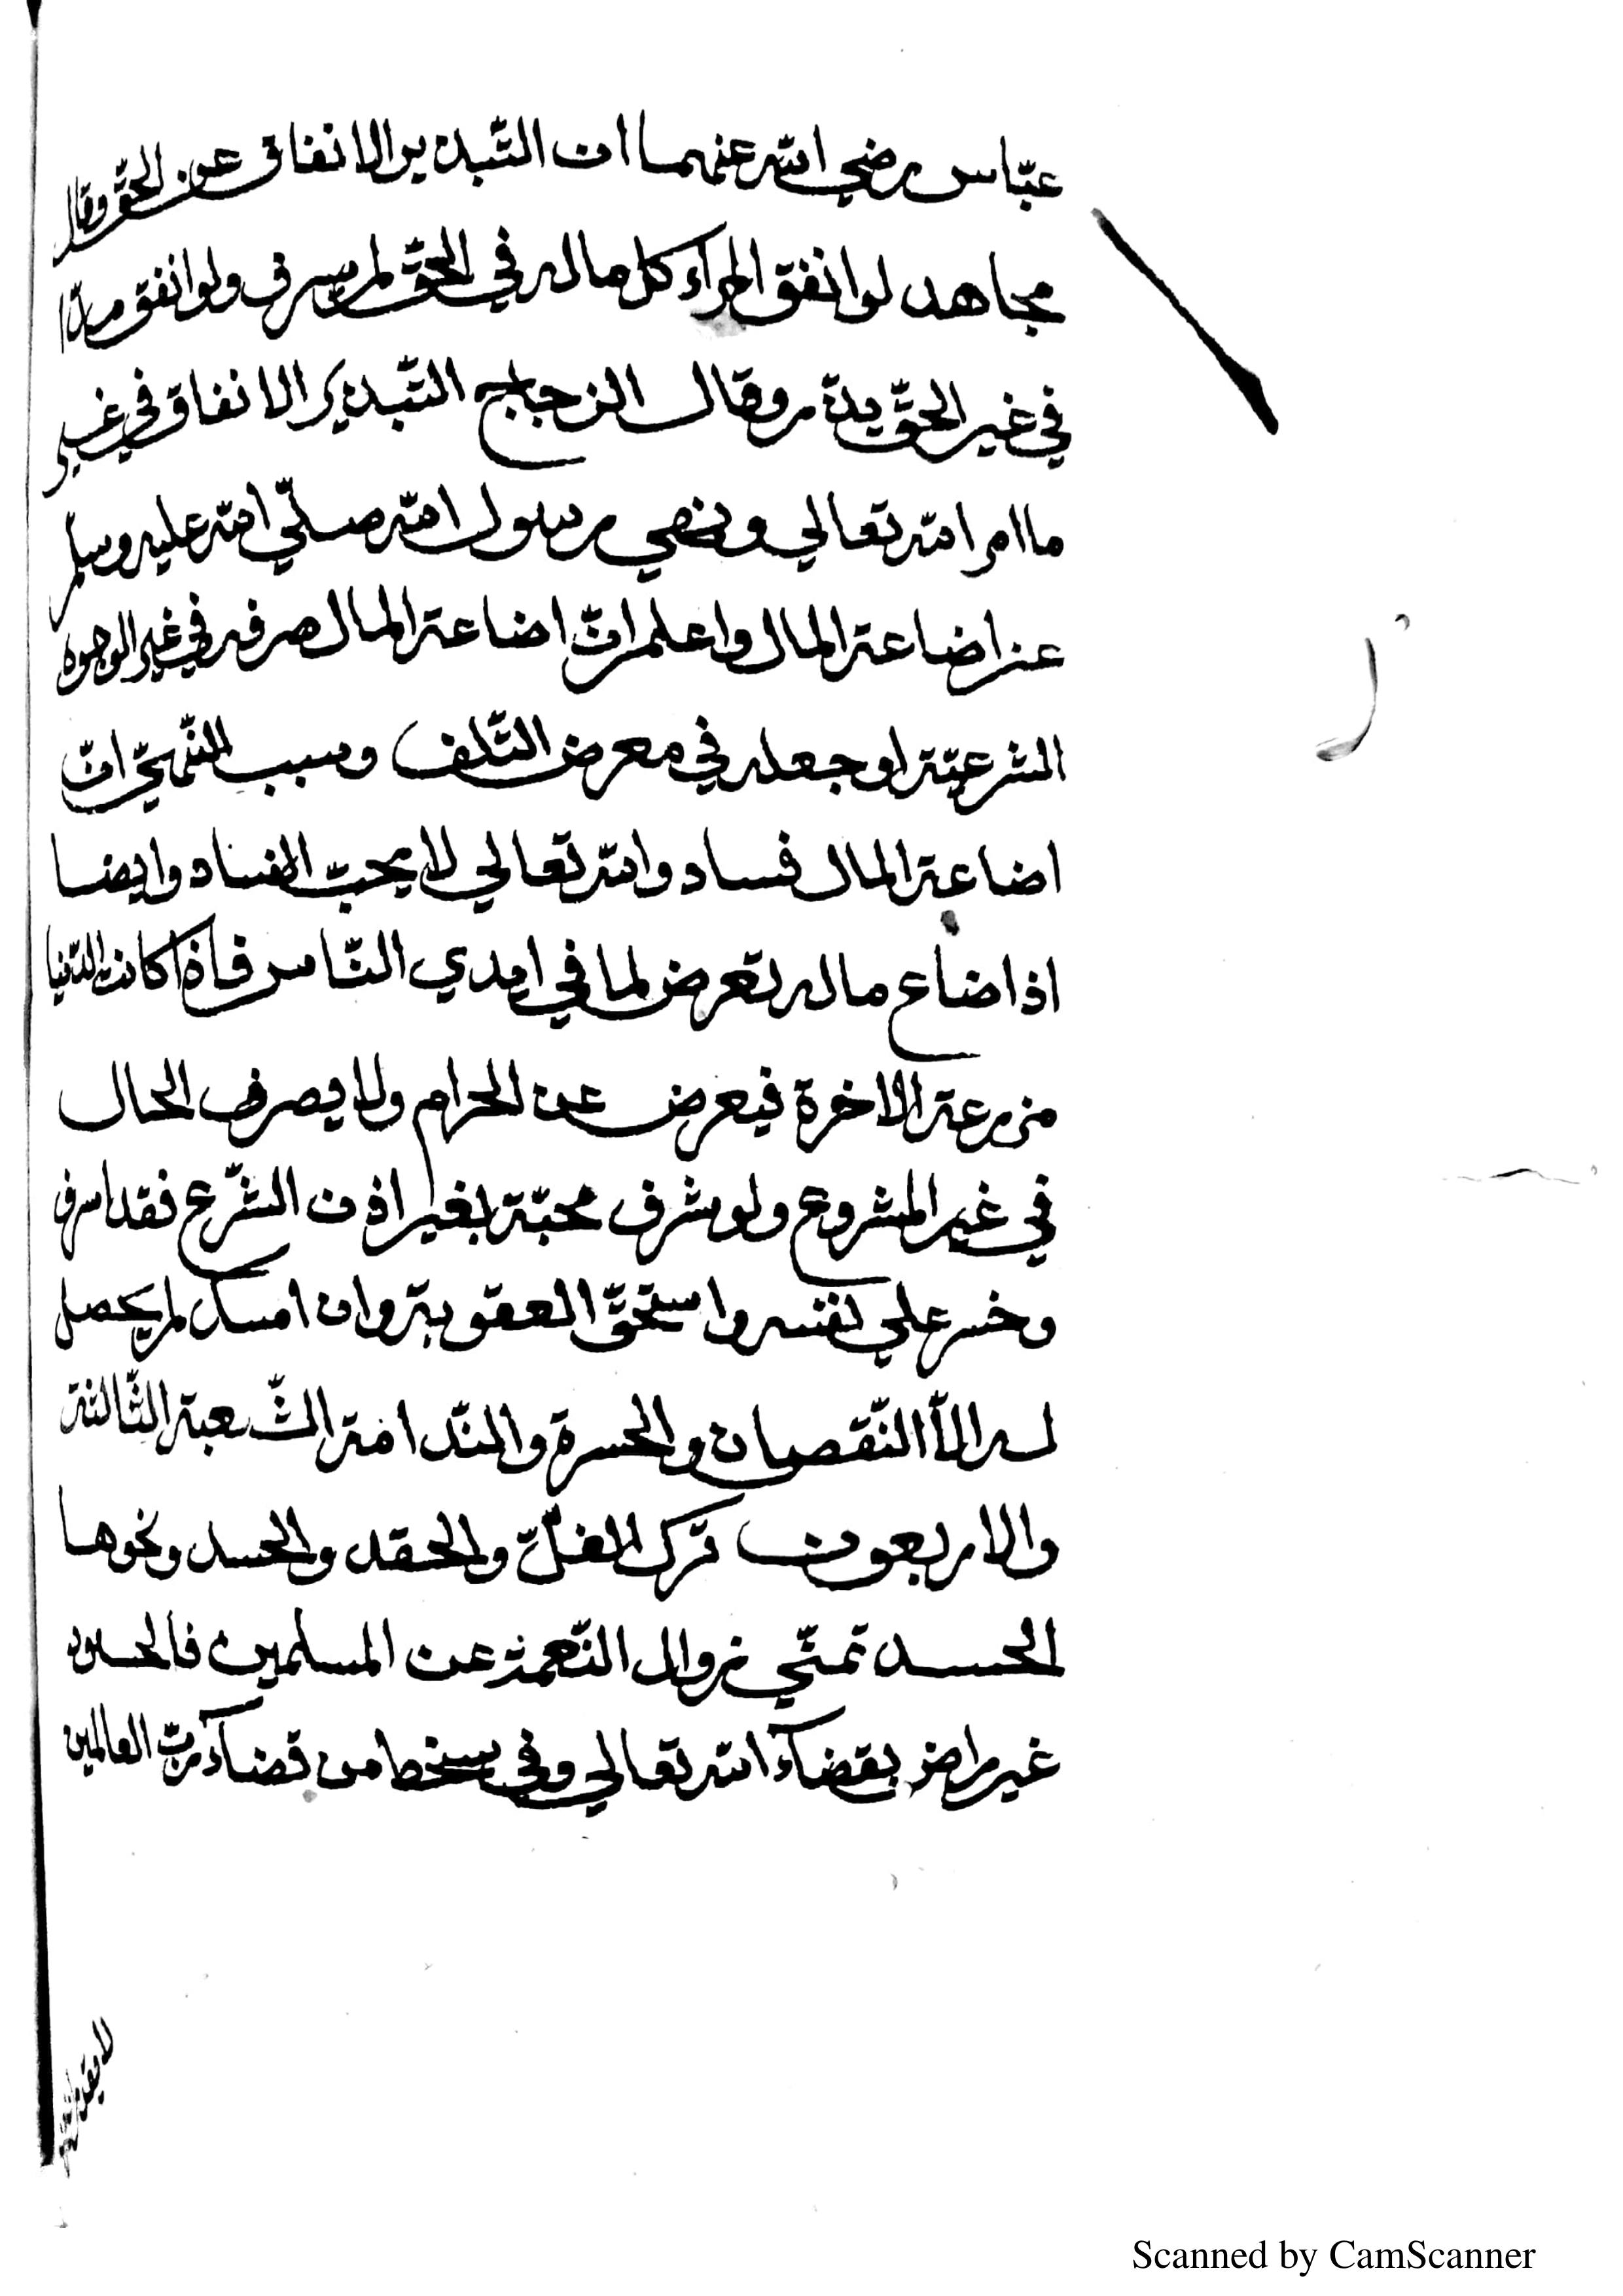 عبّاس رضي الله عنهما ان التّبذير الانفاق عن الحقّ وقال
مجاهد لو انفق المراء كل ماله في الحقّ لم يسرف ولو انفق مدّا
في غير الحقّ بذر وقال الزجاج التّبذير الانفاق في غير
ما امر الله تعالي ونهي رسول الله صلّي الله عليه وسلم
عن اضاعة المال واعلم انّ اضاعة المال صرفه في غير الوجوه
الشرعيّة او جعله في معرض التّلف وسبب النّهيّ انّ
اضاعة المال فساد والله تعالي لا يحبّ الفساد وايضا
اذا ضاع ماله تعرض لما في ايدي النّاس فاذا كانت الدّنيا
مزرعة الاخرة فيعرض عن الحرام ولا يصرف الحال
في غير المشروع ولو شرف محبّة بغير اذن الشّرع فقد اسرف
وخسر علي نفسه واستحقّ العقوبة وان امسك لم يحصل
له الاّ النّقصان والحسرة والنّدامة الشّعبة الثّالثة
والاربعون ترك الغلّ والحقد والحسد ونحوها
الحسد تمنّي زوال النّعمة عن المسلمين فالحسود
غير راض بقضاء الله تعالي وفي سخط من قضاء ربّ العالمين
Scanned by CamScanner